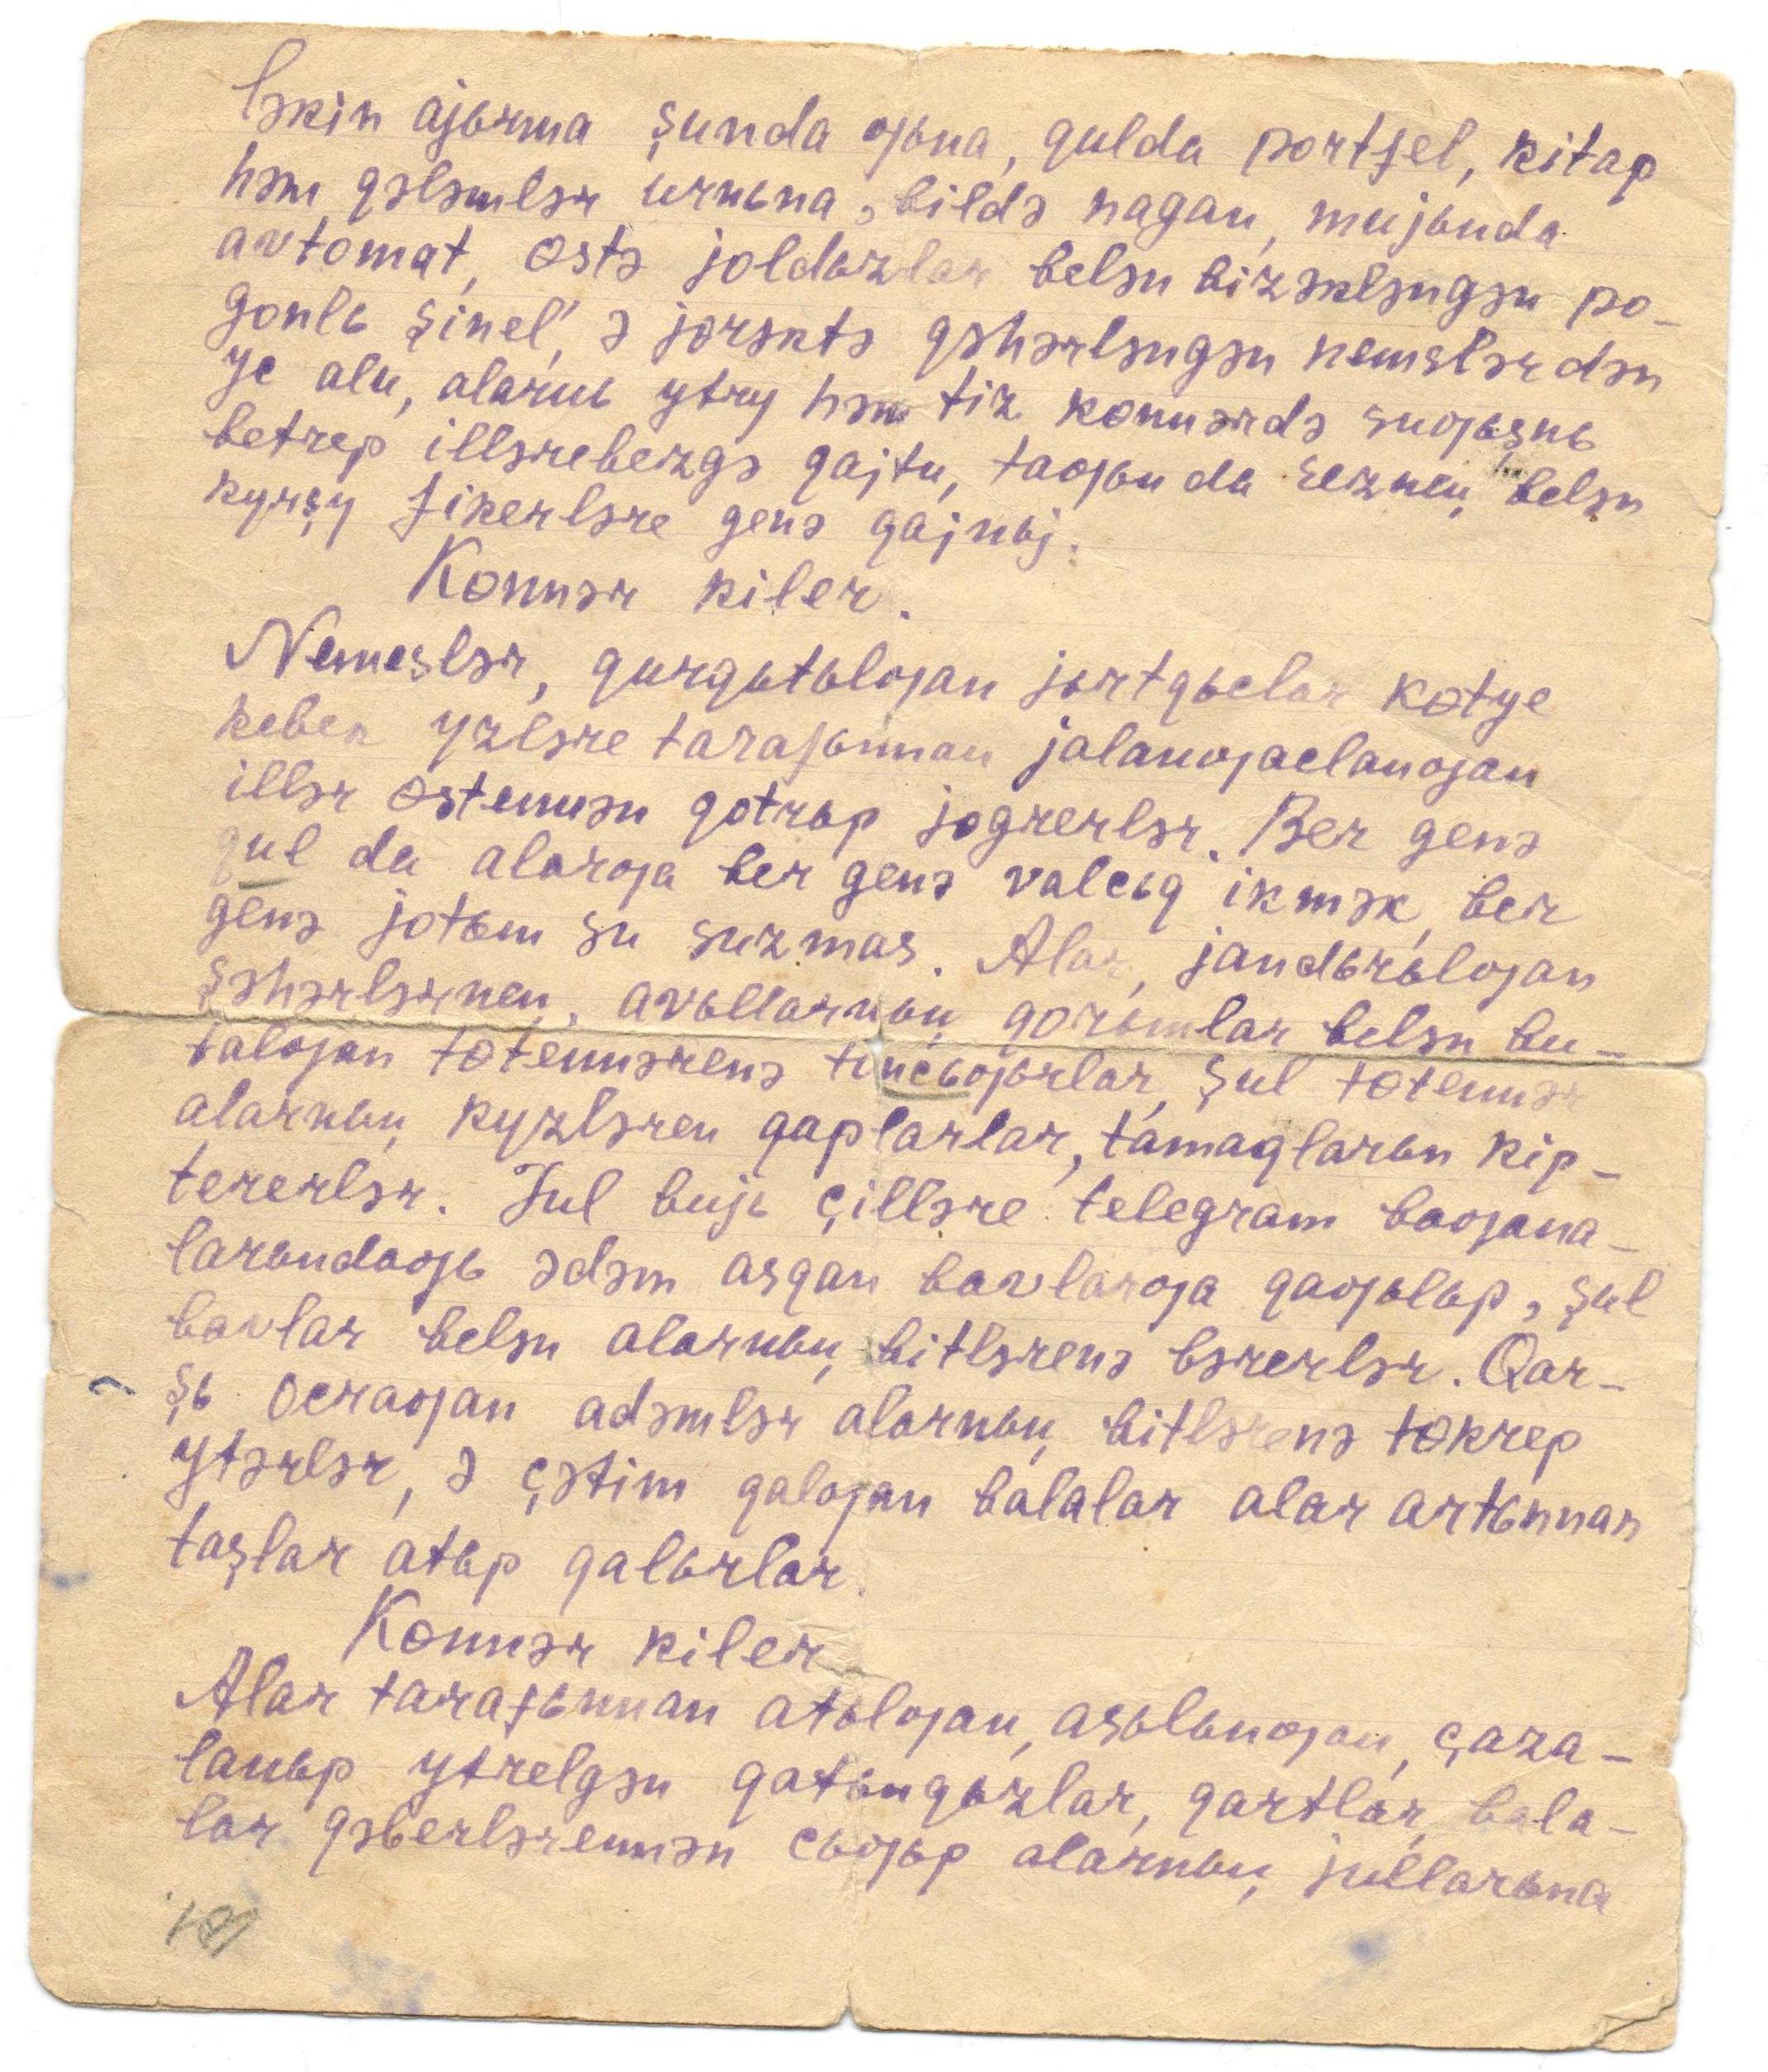 Ləkin ajьrma şunda ƣьna, qulda portfel, kitap
həm qələmlər urnьna, bildə nagan, mujьnda
avtomat, ɵstə joldьzlar belən bizəkləngən po-
gonlь şinel', ə jɵrəktə qəhərləngən nemeslərdən
yc alu, alarnь ytry həm tiz kɵnnərdə suƣьşnь
betrep illərebezgə qajtu, taƣьn da sezneꞑ belən
kyrşy fikerləre genə qajnьj.
Kɵnnər kiler.
Nemeslər, qurqьtьlƣan jьrtqьclar kɵtye
kebek yzləre tarafьnnan jalanƣaclanƣan
illər ɵstennən qotrьp jɵgrerlər. Ber genə
qul da alarƣa ber genə valcьq ikmək, ber
genə jotьm su suzmas. Alar, jandьrьlƣan
şəhərlərneꞑ, avьllarnьꞑ qorьmlar belən bu-
talƣan tɵtennərenə tuncьƣьrlar, şul tɵtennər
alarnьꞑ kyzləren qaplarlar, tamaqlarьn kip-
tererlər. Jul bujь çilləre telegram baƣana-
larьndaƣь ədəm asqan bavlarƣa qaƣьlьp, şul
bavlar belən alarnьꞑ bitlərenə bərerlər. Qar-
şь ocraƣan adəmlər alarnьꞑ bitlərenə tɵkrep
ytərlər, ə çətim qalƣan balalar alar artьnnan
taşlar atьp qalьrlar.
Kɵnnər kiler
Alar tarafьnnan atьlƣan, asьlьnƣan, çaza-
lanьp ytrelgən qatьnqьzlar, qartlar, bala-
lar qəberlərennən cьƣьp alarnьꞑ jullarьna